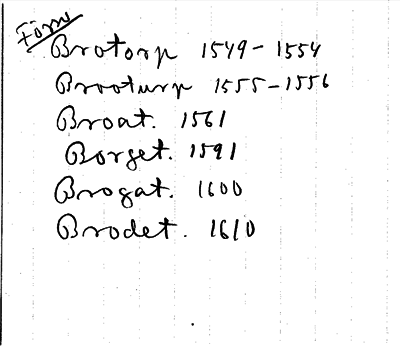 Form
Brotorp 1549-1554
Brooturp 1555-1556
Broat. 1561
Borget. 1591
Brogat. 1600
Brodet. 1610